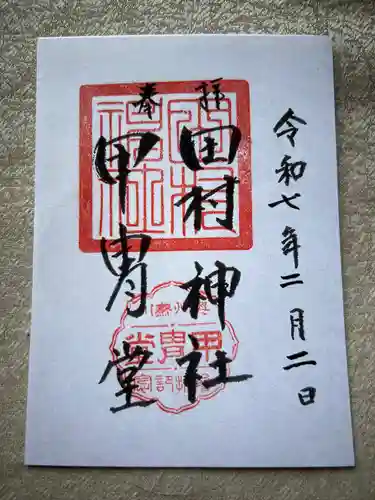 令和七年二月二日
奉拝
田村神社
甲冑堂
甲冑堂